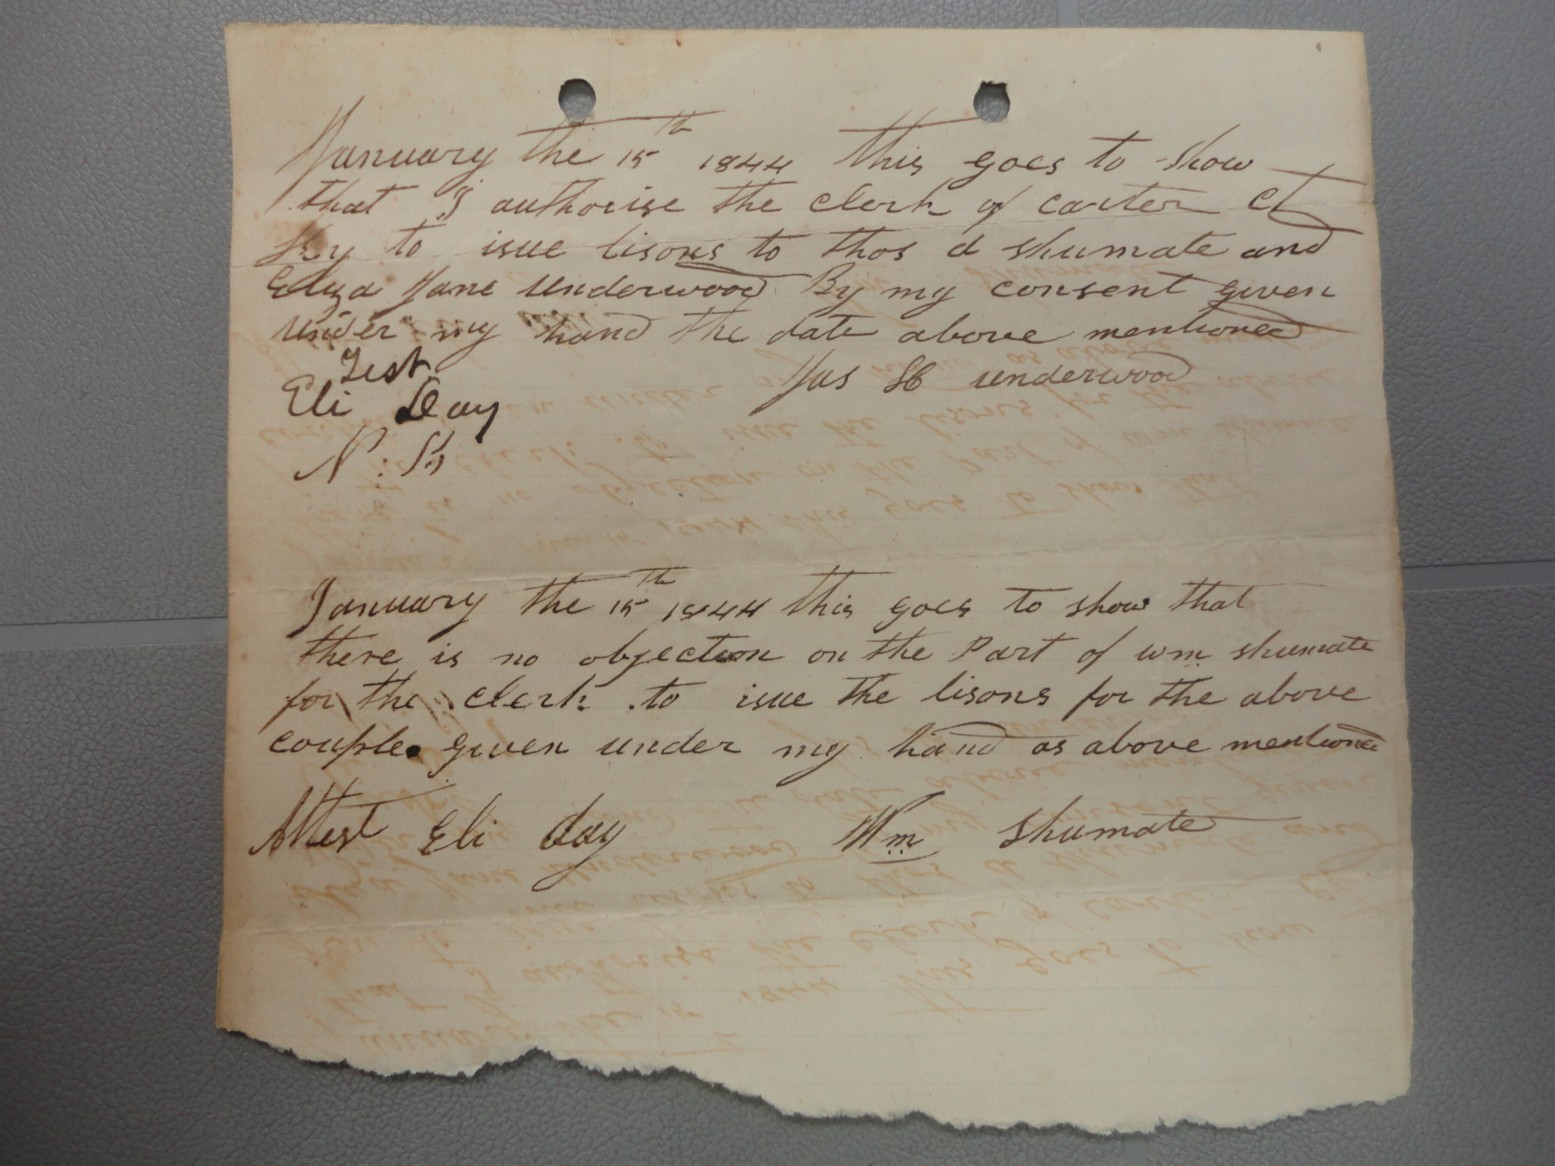 January the 15th 1844 this goes to show
that I authorise the clerk of carter Ct
Ky to isue lisons to thos d shumate and
Eliza Jane underwood By my consent given
under my hand the date above mentioned
Test Jas H underwood
Eli Day
January the 15th 1844 this goes to show that
there is no objection on the Part of wm shumate
for the clerk to isue the lisons for the above
couple given under my hand as above mentioned
Attest Eli day Wm shumate